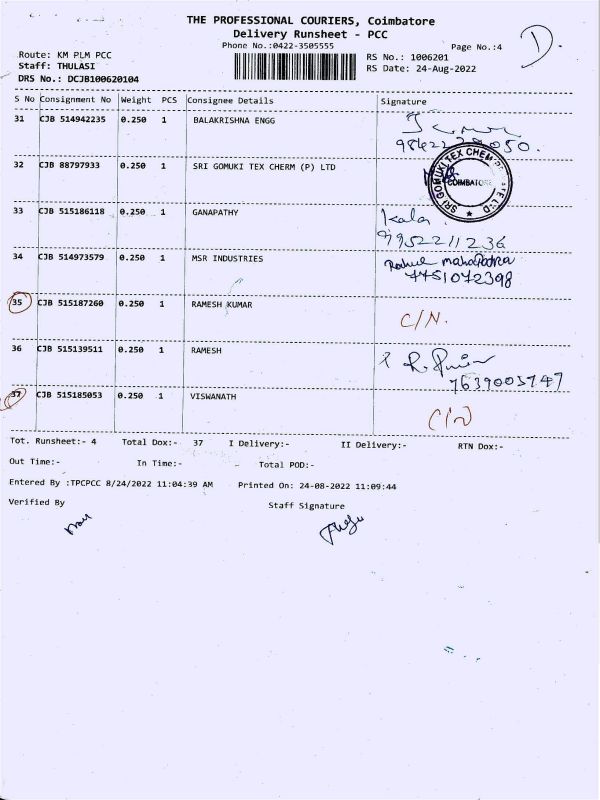 THE PROFESSIONAL COURIERS, Coimbatore
Delivery Runsheet - PCC
Phone No.:0422-3505555
Page No.:4
1).
Route: KM PLM PCC
RS No.: 1006201
Staff: THULASI
RS Date: 24-Aug-2022
DRS No.: DCJB100620104
S No Consignment No Weight PCS Consignee Details Signature
31 CJB 514942235 0.250 1 BALAKRISHNA ENGG
32 CJB 88797933 0.250 1 SRI GOMUKI TEX CHERM (P) LTD
SRI GOMUKI TEX CHEM PRIVATE LTD
COIMBATORE
33 CJB 515186118 0.250 1 GANAPATHY Kala
9952211236
34 CJB 514973579 0.250 1 MSR INDUSTRIES Rahul mahapatra
7751072398
35 CJB 515187260 0.250 1 RAMESH KUMAR C/N.
36 CJB 515139511 0.250 1 RAMESH
7639003747
37 CJB 515185053 0.250 1 VISWANATH C/N
Tot. Runsheet:- 4 Total Dox:- 37 I Delivery:- II Delivery:- RTN Dox:-
Out Time:- In Time:- - Total POD:-
Entered By :TPCPCC 8/24/2022 11:04:39 AM Printed On: 24-08-2022 11:09:44
Verified By Staff Signature